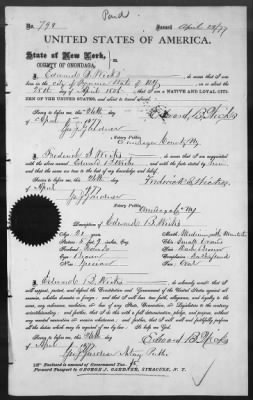 Paid
No. 799 Issued April 28/77
UNITED STATES OF AMERICA.
State of New York,
COUNTY OF ONONDAGA, ss.
I, Edward B. Weeks, do swear that I was born in the
city of State of N.Y., on or about the
day of April and that I am a NATIVE AND LOYAL CITIZEN
OF THE UNITED STATES, and about to travel abroad.
Sworn to before me, this 26th day
of April 1877
Geo. J. Gardner
Notary Public.
Onondaga County NY
Edward B. Weeks
I, Frederick B. Weeks, do swear that I am acquainted with
the above named Edward B. Weeks and with the facts stated by him, and
that the same are true to the best of my knowledge and belief.
Sworn to before me, this 26th day
of April 1877
Geo. J. Gardner
Notary Public.
Onondaga Co. NY
Frederick B. Weeks
Description of Edward B. Weeks
Age: 21 years
Stature: 5 feet inches, Eng.
Forehead:
Eyes: Brown
Nose:
Mouth: Medium, with Mustache
Chin: Small
Hair: Dark Brown
Complexion:
Face: Oval
I, Edward B. Weeks, do solemnly swear that I will
support, protect, and defend the Constitution and Government of the United States against all
enemies, whether domestic or foreign; and that I will bear true faith, allegiance, and loyalty to the
same, any ordinance, resolution, or law of any State, Convention, or Legislature to the contrary
notwithstanding; and further, that I do this with a full determination, pledge, and purpose, without
any mental reservation or evasion whatsoever; and further, that I will well and faithfully perform
all the duties which may be required of me by law. So help me God.
Sworn to before me, this 26th day
of April 1877
Geo. J. Gardner Notary Public
Edward B. Weeks
Enclosed is amount of Government Tax, $5
Forward Passport to GEORGE J. GARDNER, SYRACUSE, N. Y.